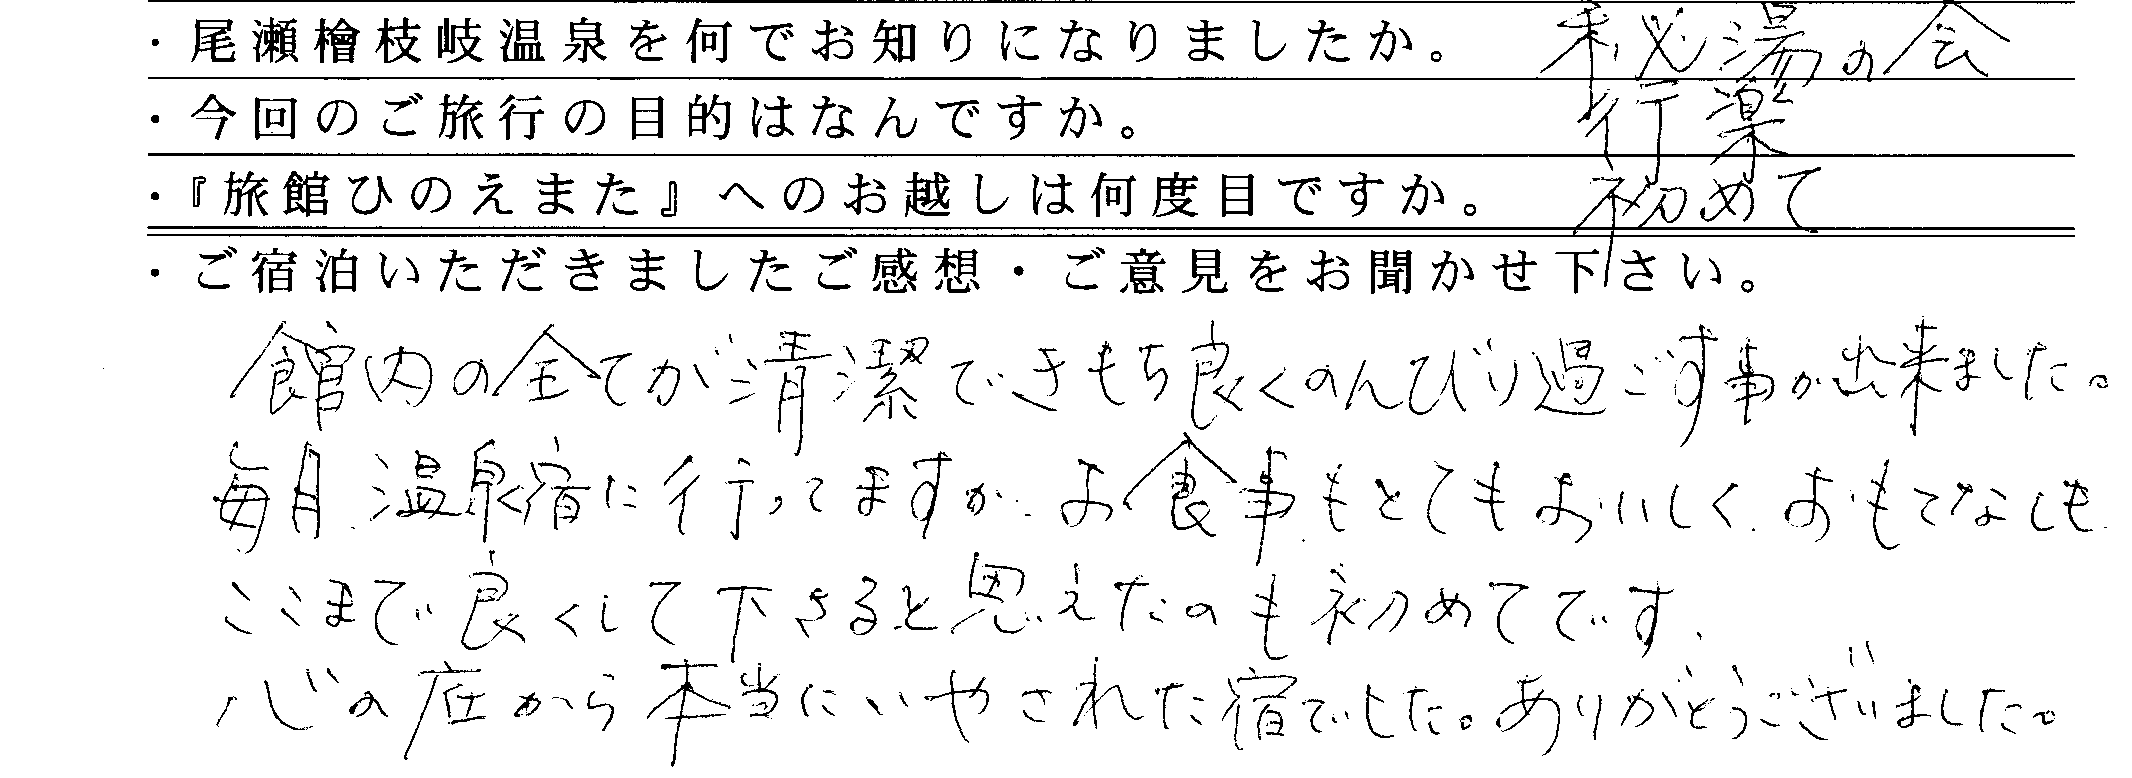 ・尾瀬檜枝岐温泉を何でお知りになりましたか。 秘湯の会
・今回のご旅行の目的はなんですか。 行楽
・『旅館ひのえまた』へのお越しは何度目ですか。 初めて
・ご宿泊いただきましたご感想・ご意見をお聞かせ下さい。
館内の全てが清潔できもち良くのんびり過ごす事が出来ました。
毎月、温泉宿に行ってますが、お食事もとてもおいしく、おもてなしも
ここまで良くして下さると思えたのも初めてです、
心の底から本当にいやされた宿でした。ありがとうございました。